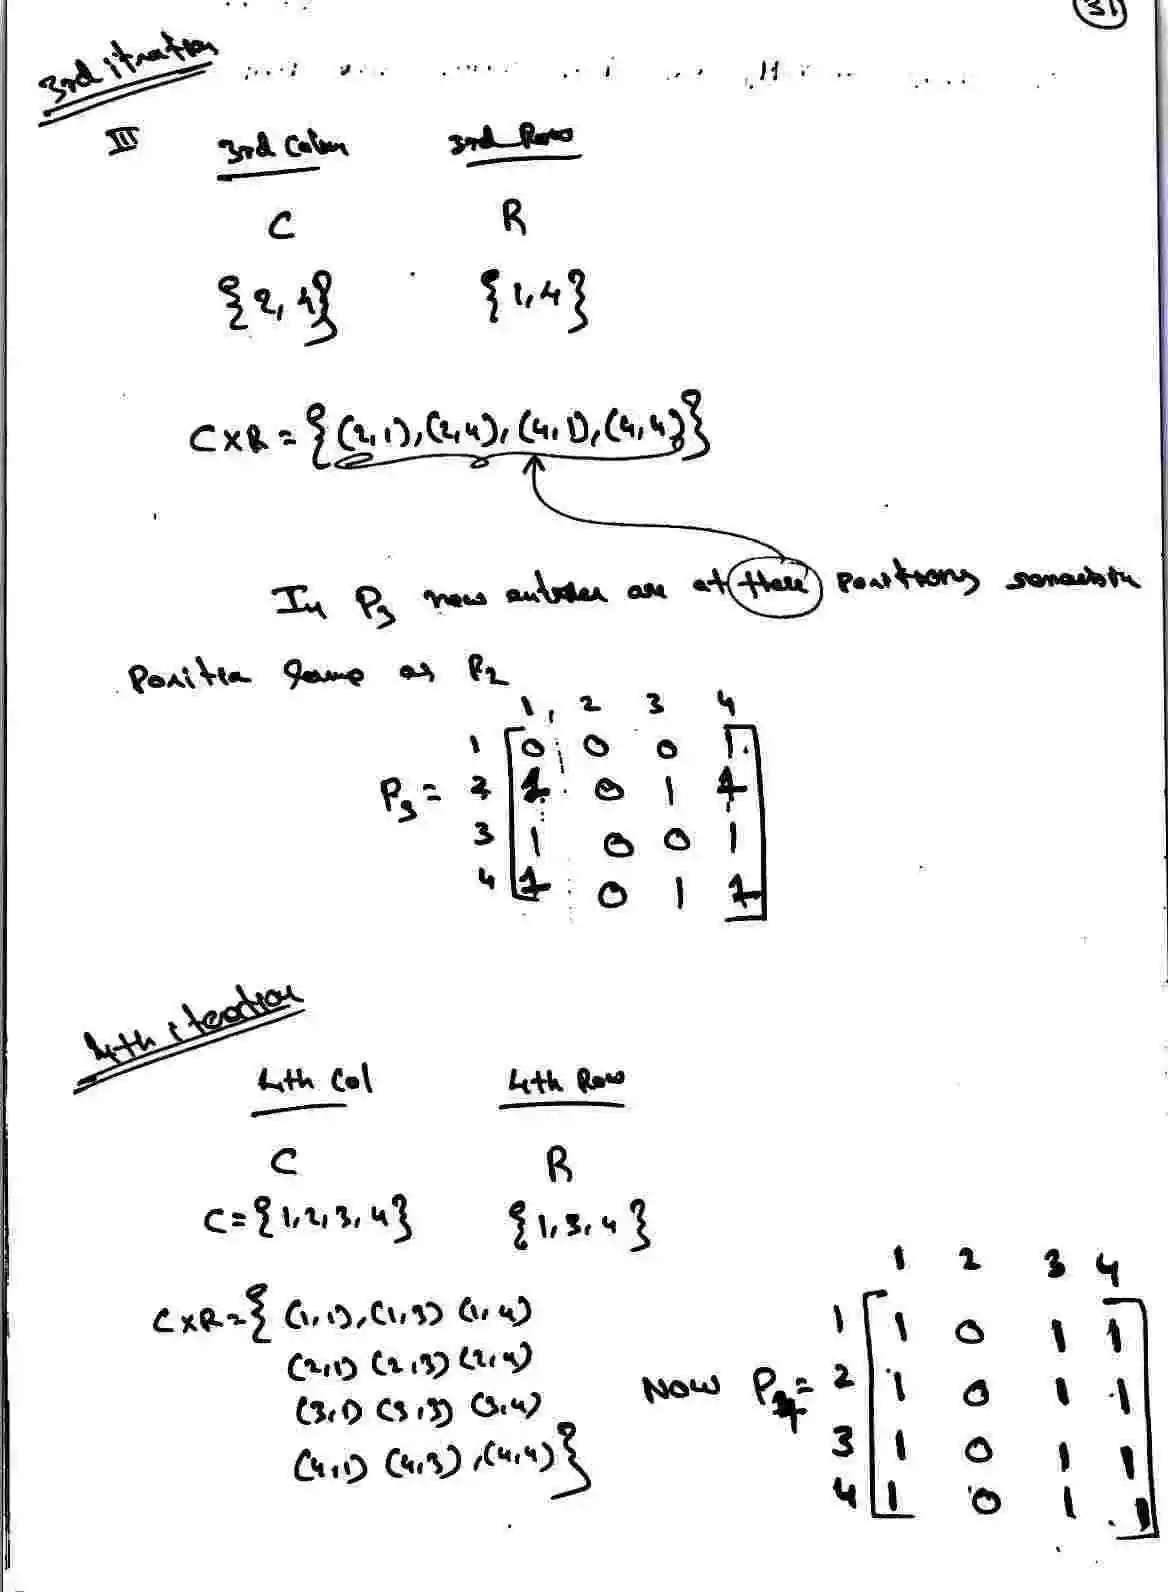 31
3rd itration
III 3rd Colum 3rd Row
C R
{2, 4} {1,4}
C×R = {(2,1),(2,4),(4,1),(4,4)}
In P3 new entries are at these positions
Position same as P2
1, 2 3 4
1 [0 0 0 1]
P3 = 2 [1 0 1 1]
3 [1 0 0 1]
4 [1 0 1 1]
4th iteration
4th Col 4th Row
C R
C={1,2,3,4} {1,3,4}
1 2 3 4
C×R={ (1,1),(1,3) (1,4) 1 [1 0 1 1]
(2,1) (2,3) (2,4) Now P4= 2 [1 0 1 1]
(3,1) (3,3) (3,4) 3 [1 0 1 1]
(4,1) (4,3),(4,4)} 4 [1 0 1 1]